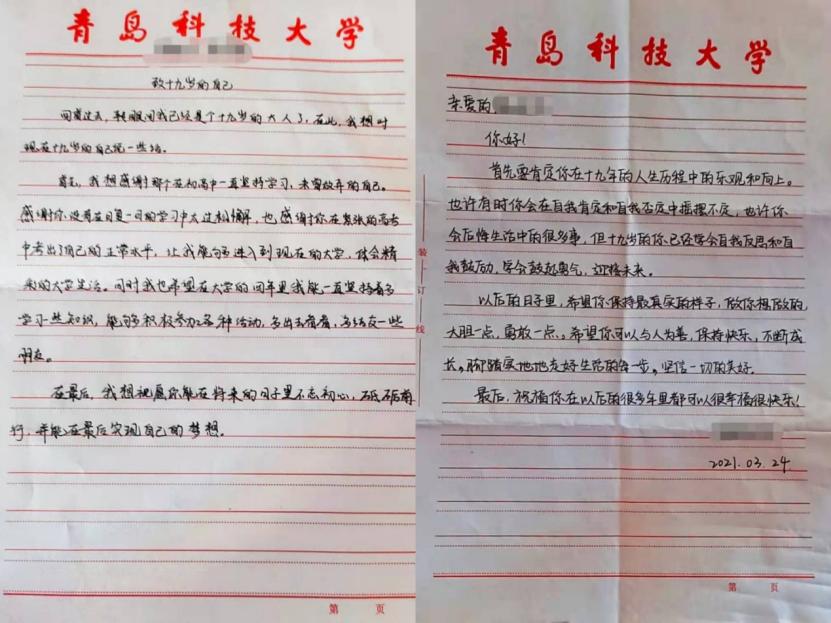 青岛科技大学
致十九岁的自己
回首过去，转眼间我已经是个十九岁的大人了，在此，我想对
现在十九岁的自己说一些话。
首先，我想感谢那个在初高中一直坚持学习，未曾放弃的自己。
感谢你没有在日复一日的学习中太过松懈，也感谢你在紧张的高考
中考出了自己的正常水平，让我能够进入到现在的大学，体会精
彩的大学生活。同时我也希望在大学的四年里我能一直坚持着多
学习些知识，能够多积极参加各种活动，多出去看看，多结交一些
朋友。
在最后，我想祝愿你能在将来的日子里不忘初心，砥砺前
行，并能在最后实现自己的梦想。
第 页
装
订
线
青岛科技大学
亲爱的
你好！
首先要肯定你在十九年的人生历程中的乐观和向上。
也许有时你会在自我肯定和自我否定中摇摆不定，也许你
会后悔生活中的很多事，但十九岁的你已经学会自我反思和自
我鼓励，学会鼓起勇气，迎接未来。
以后的日子里，希望你保持最真实的样子，做你想做的
大胆一点，勇敢一点。希望你可以与人为善，保持快乐，不断成
长。脚踏实地地走好生活的每一步，坚信一切的美好。
最后，祝福你在以后的很多年里都可以很幸福很快乐！
2021.03.24
第 页